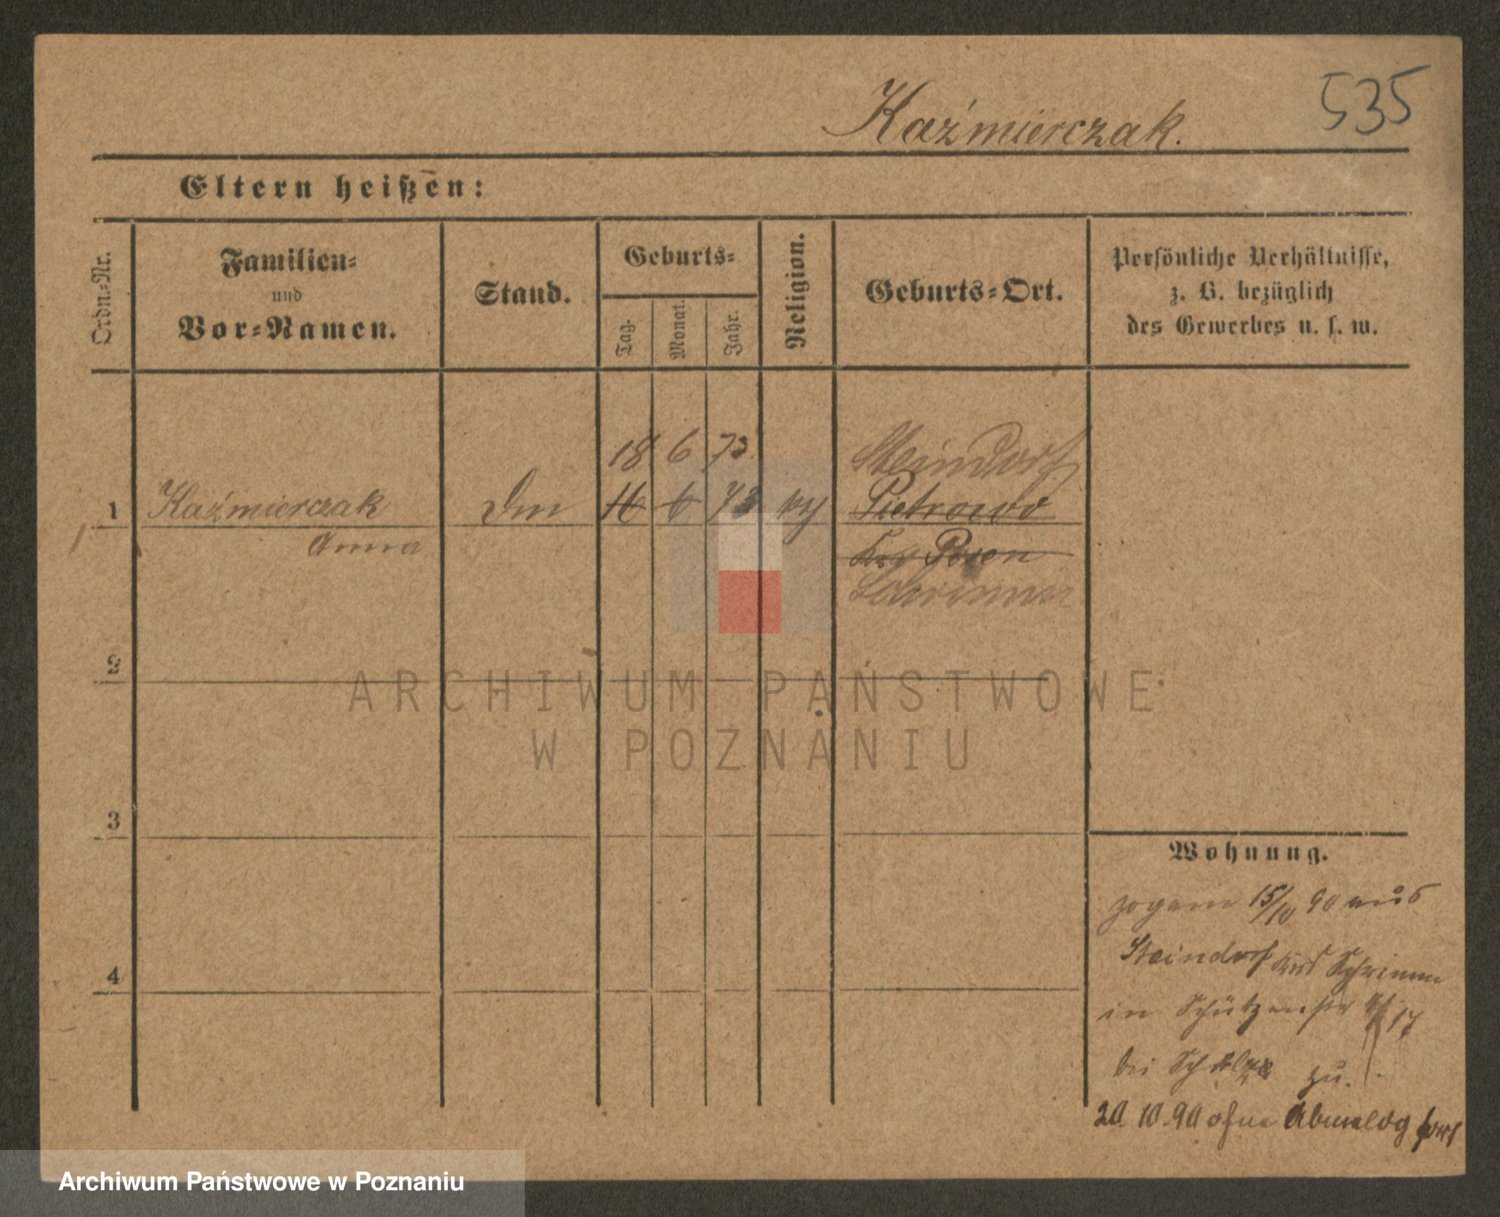 535
Kaźmierczak.
Eltern heißen:
Ordn.-Nr.
Familien-
und
Vor-Namen.
Stand.
Geburts-
Tag.
Monat.
Jahr.
Religion.
Geburts-Ort.
Persönliche Verhältnisse,
z. B. bezüglich
des Gewerbes u. s. w.
18 6 73
Steindorf
1 Kaźmierczak 6 73 Pietrowo
Anna
Posen
Schrimm
2
ARCHIWUM PAŃSTWOWE
W POZNANIU
3
Wohnung.
zogen 15/10 90 aus
4
Steindorf Schrimm
in Schützenstr 17
bei Schulze zu.
20.10.90 ohne Abmeldg fort
Archiwum Państwowe w Poznaniu